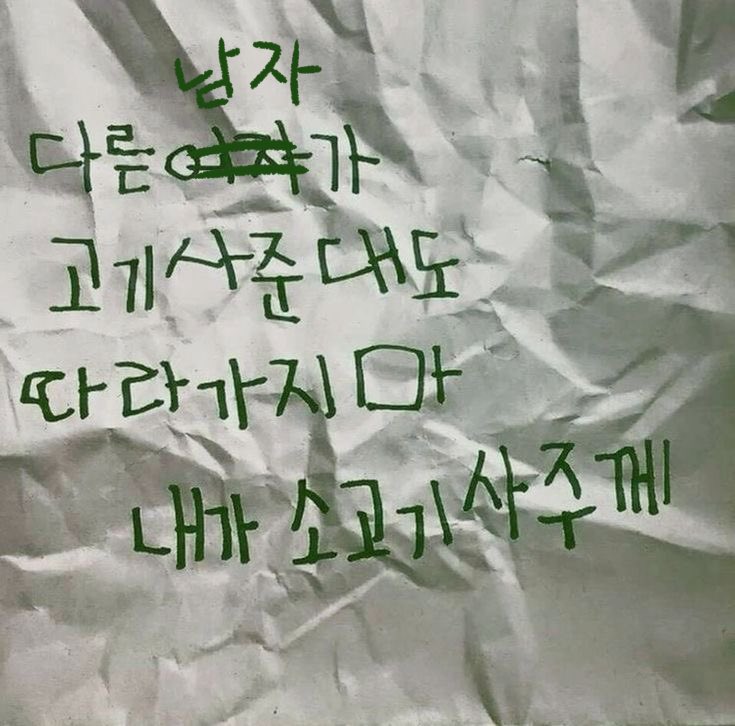 남자
다른 여자가
고기사준대도
따라가지마
내가 소고기사주께